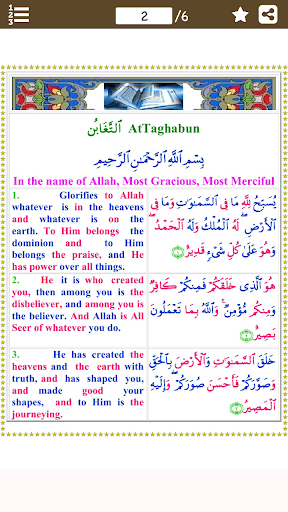 1
2
3
2 /6
ٱلتَّغَابُن AtTaghabun
بِسْمِ ٱللَّهِ ٱلرَّحْمَٰنِ ٱلرَّحِيمِ
In the name of Allah, Most Gracious, Most Merciful
1. Glorifies to Allah
whatever is in the heavens
and whatever is on the
earth. To Him belongs the
dominion and to Him
belongs the praise, and He
has power over all things.
يُسَبِّحُ لِلَّهِ مَا فِى ٱلسَّمَٰوَٰتِ وَمَا فِى
ٱلْأَرْضِ ۖ لَهُ ٱلْمُلْكُ وَلَهُ ٱلْحَمْدُ ۖ
وَهُوَ عَلَىٰ كُلِّ شَىْءٍ قَدِيرٌ ١
2. He it is who created
you, then among you is the
disbeliever, and among you is
the believer. And Allah is All
Seer of whatever you do.
هُوَ ٱلَّذِى خَلَقَكُمْ فَمِنكُمْ كَافِرٌ
وَمِنكُم مُّؤْمِنٌ ۚ وَٱللَّهُ بِمَا تَعْمَلُونَ
بَصِيرٌ ٢
3. He has created the
heavens and the earth with
truth, and has shaped you,
and made good your
shapes, and to Him is the
journeying.
خَلَقَ ٱلسَّمَٰوَٰتِ وَٱلْأَرْضَ بِٱلْحَقِّ
وَصَوَّرَكُمْ فَأَحْسَنَ صُوَرَكُمْ ۖ وَإِلَيْهِ
ٱلْمَصِيرُ ٣